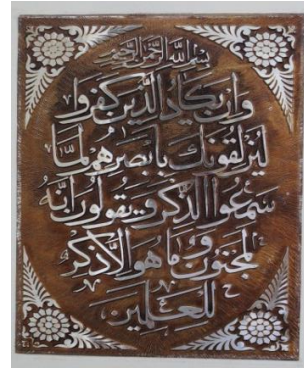 بسم الله الرحمن الرحيم
وان يكاد الذين كفروا
ليزلقونك بابصرهم لما
سمعوا الذكر ويقولون انه
لمجنون وما هو الا ذكر
للعلمين